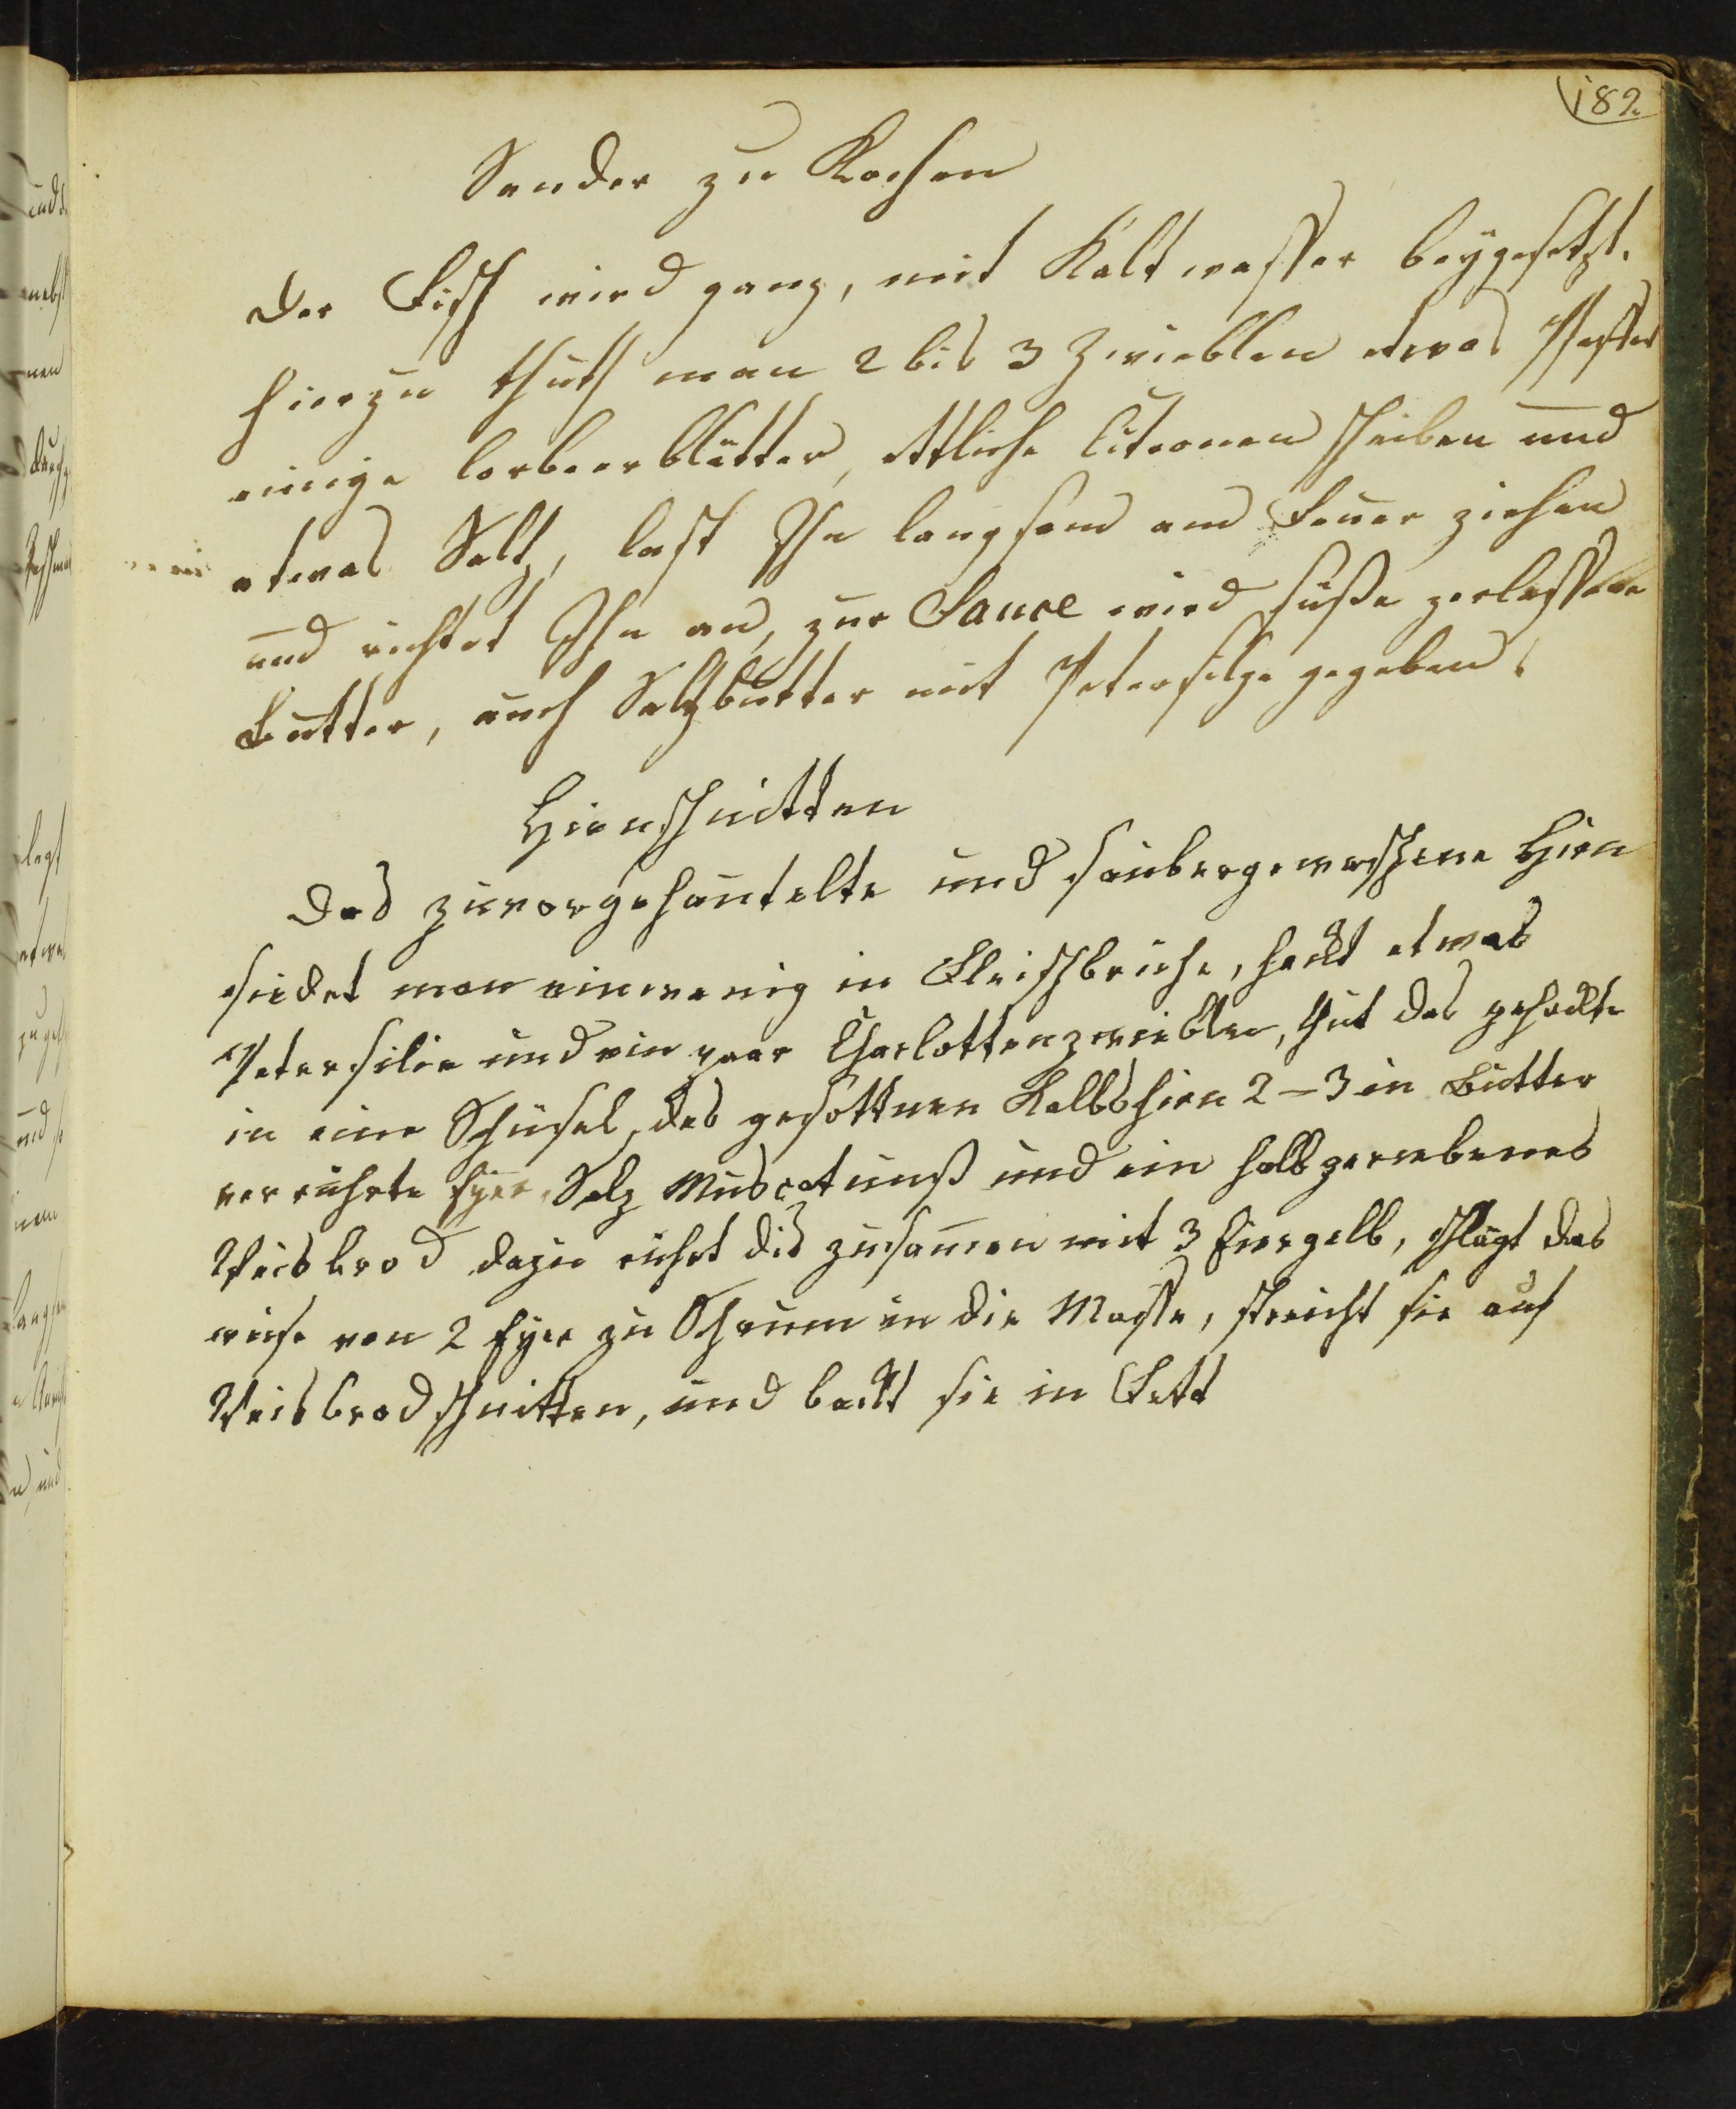 182
Sander zu Kochen
Der Fisch wird ganz, mit Kaltwasser beÿgesetzt.
hierzu thuth man 2 bis 3 Zwieblen etwas Pfeffer
einige lorbeerblätter, ettliche Citronen scheiben und
etwas Saltz, last Ihn langsam am Feuer ziehen
und richtet Ihn an, zur Sauce wird süße zerlassene
Butter, auch Salzbutter mit Petersilge gegeben.
Hirnschnitten
Das zuvorgehäutelte und saubergewaschene Hirn
siedet man ein wenig in Fleischbrühe, hackt etwas
Petersilie und ein paar Charlottenzwieblen, thut das gehackte
in eine Schüsel, das gesottnen Kalbshirn 2–3 in Butter
verrührte Eyer, Salz Muscatnuß und ein halb geriebenes
Weisbrod dazu rührt dis zusamen mit 3 Eiergelb, schlägt das
weise von 2 Eyer zu Schaum in die Masse, streicht sie auf
Weisbrodschnitten, und backt sie in Fett